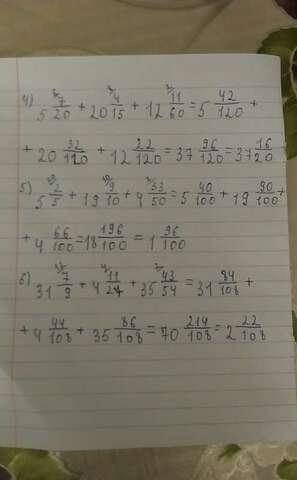 4) 5 7/20 + 20 4/15 + 12 11/60 = 5 42/120 +
+ 20 32/120 + 12 22/120 = 37 96/120 = 37 16/20
5) 5 2/5 + 19 9/10 + 4 33/50 = 5 40/100 + 19 90/100 +
+ 4 66/100 = 18 196/100 = 1 96/100
6) 31 7/9 + 4 11/27 + 35 43/54 = 31 84/108 +
+ 4 44/108 + 35 86/108 = 70 214/108 = 2 22/108